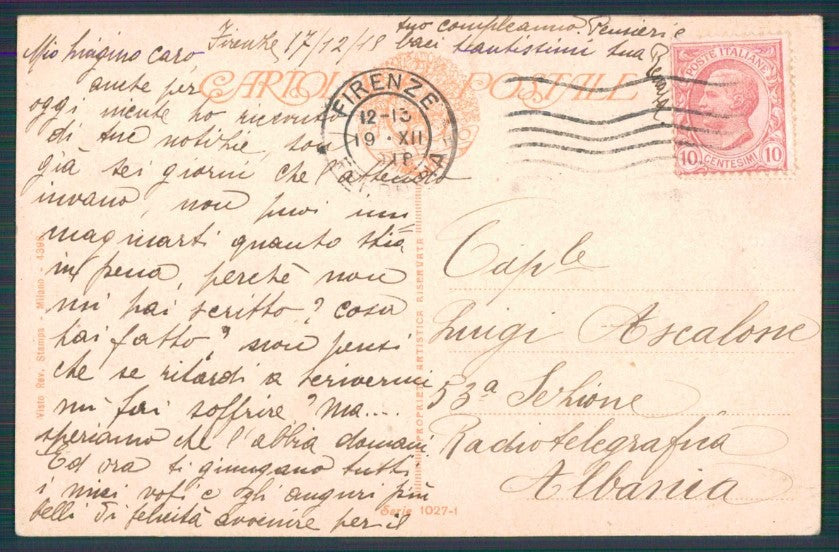 Firenze 17/12/18
Mio Luigino caro,
anche per
oggi niente ho ricevuto
di tue notizie, son
già sei giorni che attendo
invano, non puoi im
maginarti quanto stia
in pena, perchè non
mi hai scritto? Cosa
hai fatto? non pensi
che se ritardi a scrivermi
mi fai soffrire? Ma....
speriamo che l'abbia domani
Ed ora ti giungano tutti
i miei voti e gli auguri più
belli di felicità avvenire per il
tuo compleanno. Pensieri e
baci tantissimi tua
CARTOLINA POSTALE
FIRENZE
12-13
19·XII
POSTE ITALIANE
10 CENTESIMI 10
Cap.le
Luigi Ascalone
53a Sezione
Radiotelegrafica
Albania
Visto Rev. Stampa - Milano - 4398
PROPRIETÀ ARTISTICA RISERVATA
Serie 1027-1